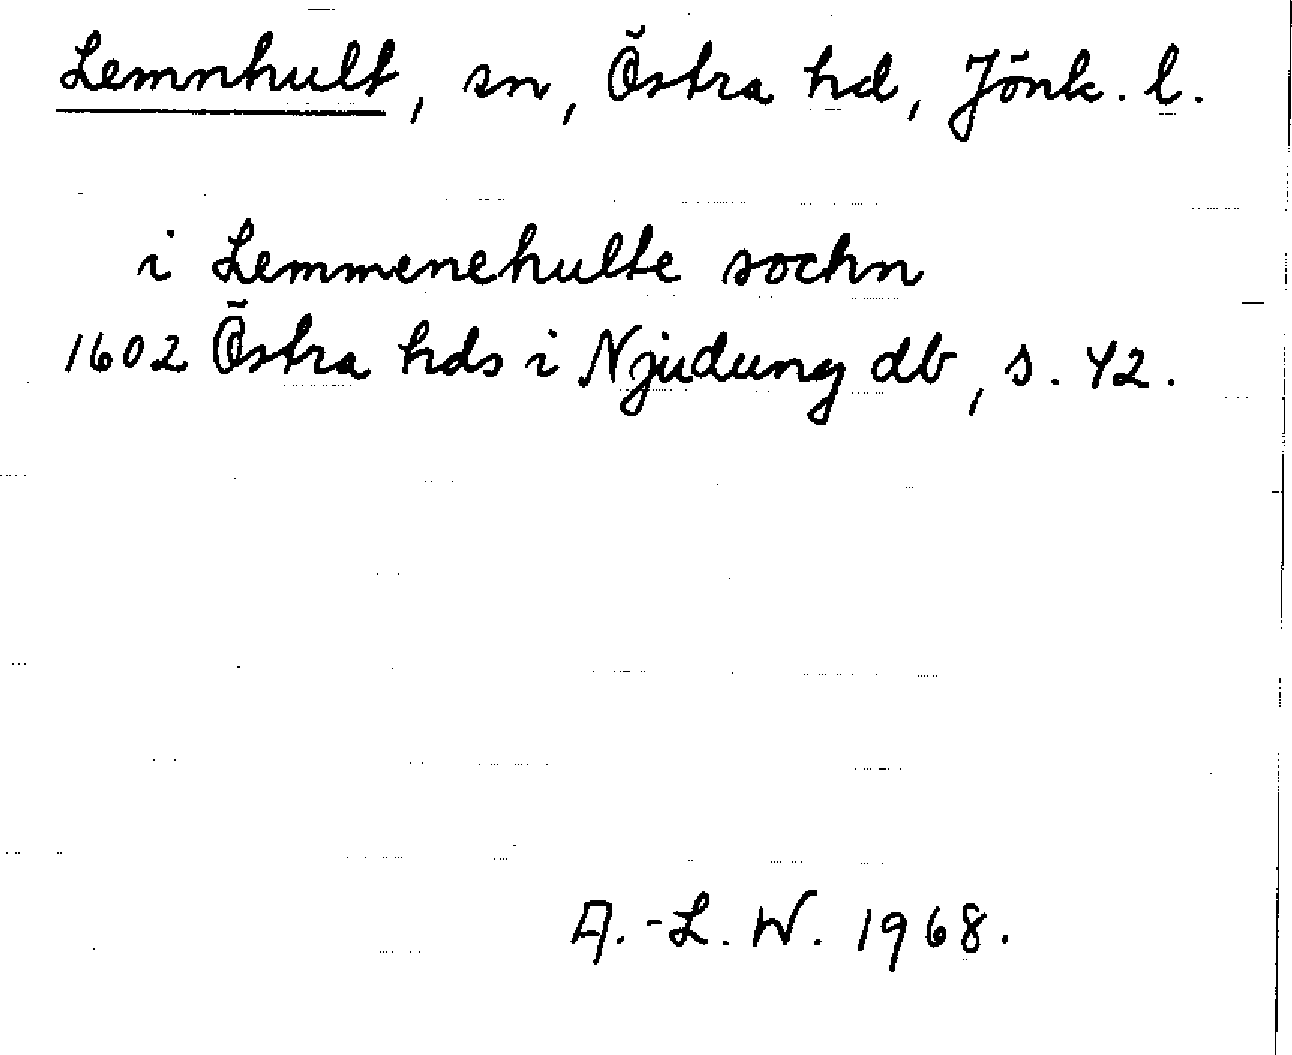 Lemnhult, sn, Östra hd, Jönk. l.
i Lemmenehulte sochn
1602 Östra hds i Njudung db, s. 42.
A.-L. W. 1968.